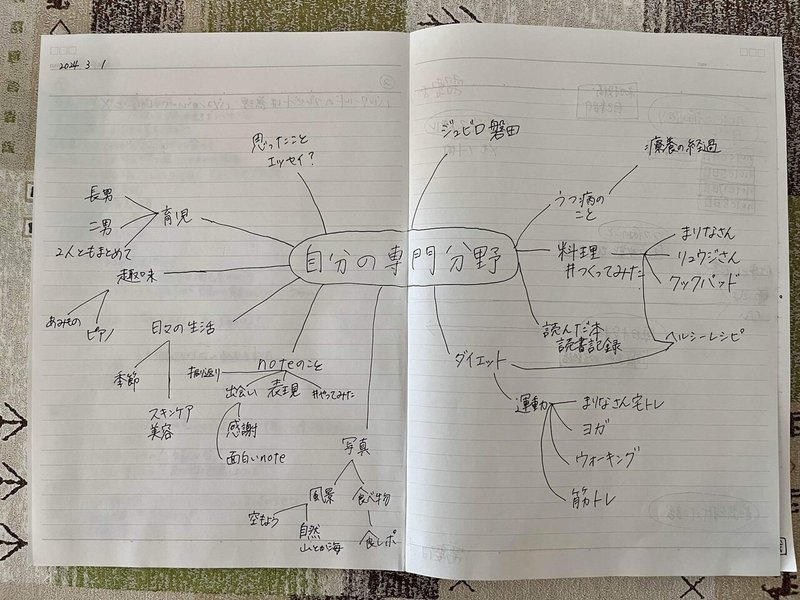 2024 3 1
自分の専門分野
思ったこと
エッセイ?
ジュビロ磐田
療養の経過
うつ病の
こと
長男
二男
2人ともまとめて
育児
趣味
あみもの
ピアノ
日々の生活
季節
スキンケア
美容
noteのこと
振り返り
出会い
表現
#やってみた
感謝
面白いnote
写真
風景
食べ物
空もよう
自然
山とか海
食レポ
料理
#つくってみた
まりなさん
リュウジさん
クックパッド
ヘルシーレシピ
読んだ本
読書記録
ダイエット
運動
まりなさん宅トレ
ヨガ
ウォーキング
筋トレ